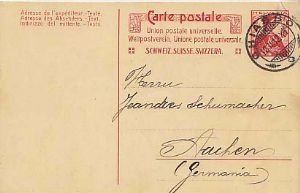 Adresse de l'expéditeur - Texte
Adresse des Absenders - Text
Indirizzo del mittente - Testo
Carte postale
Union postale universelle
Weltpostverein. Unione postale universale
SCHWEIZ. SUISSE. SVIZZERA.
Herrn
Leandres Schumacher
Aachen
(Germania)